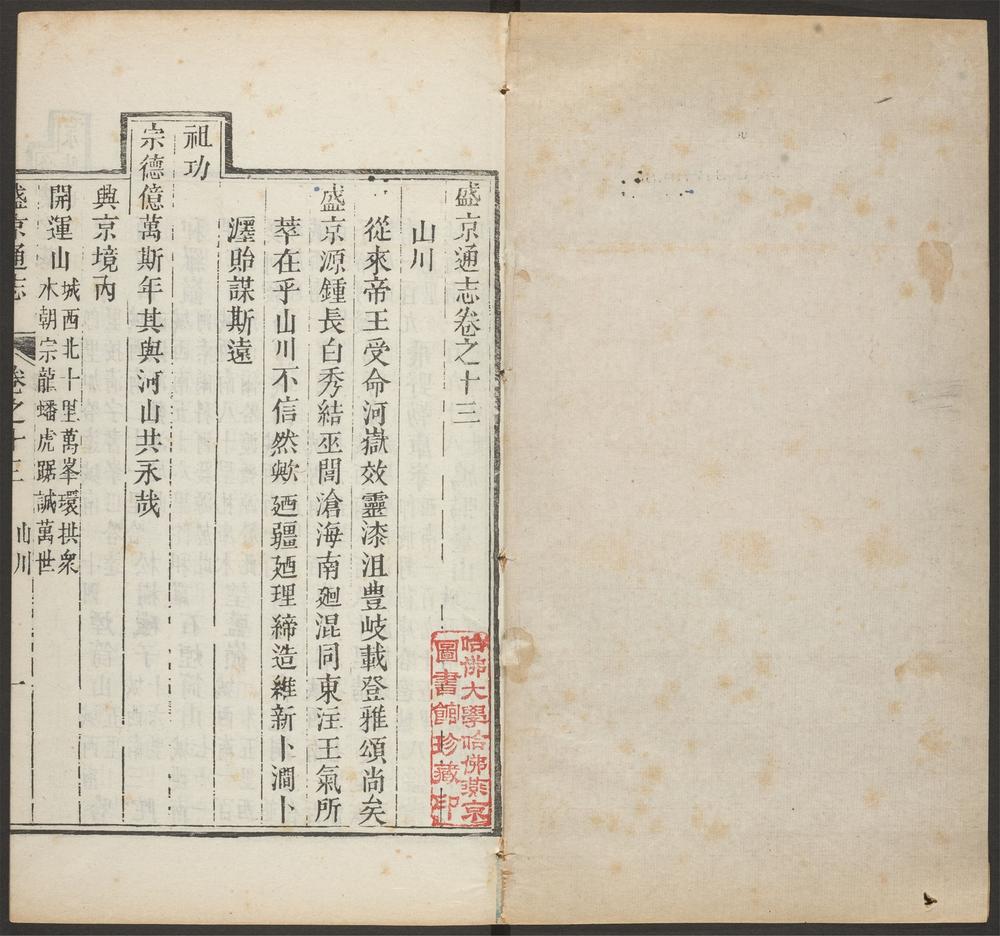 盛京通志卷之十三
山川
從來帝王受命河嶽效靈漆沮豐岐載登雅頌尚矣
盛京源鍾長白秀結巫閭滄海南廻混同東注王氣所
萃在乎山川不信然歟廼疆廼理締造維新卜澗卜
瀍貽謀斯遠
祖功
宗德億萬斯年其與河山共永哉
興京境內
開運山城西北十里萬峯環拱衆
水朝宗龍蟠虎踞誠萬世
盛京通志
卷之十三
山川
一
哈佛大學哈佛燕京
圖書館珍藏印